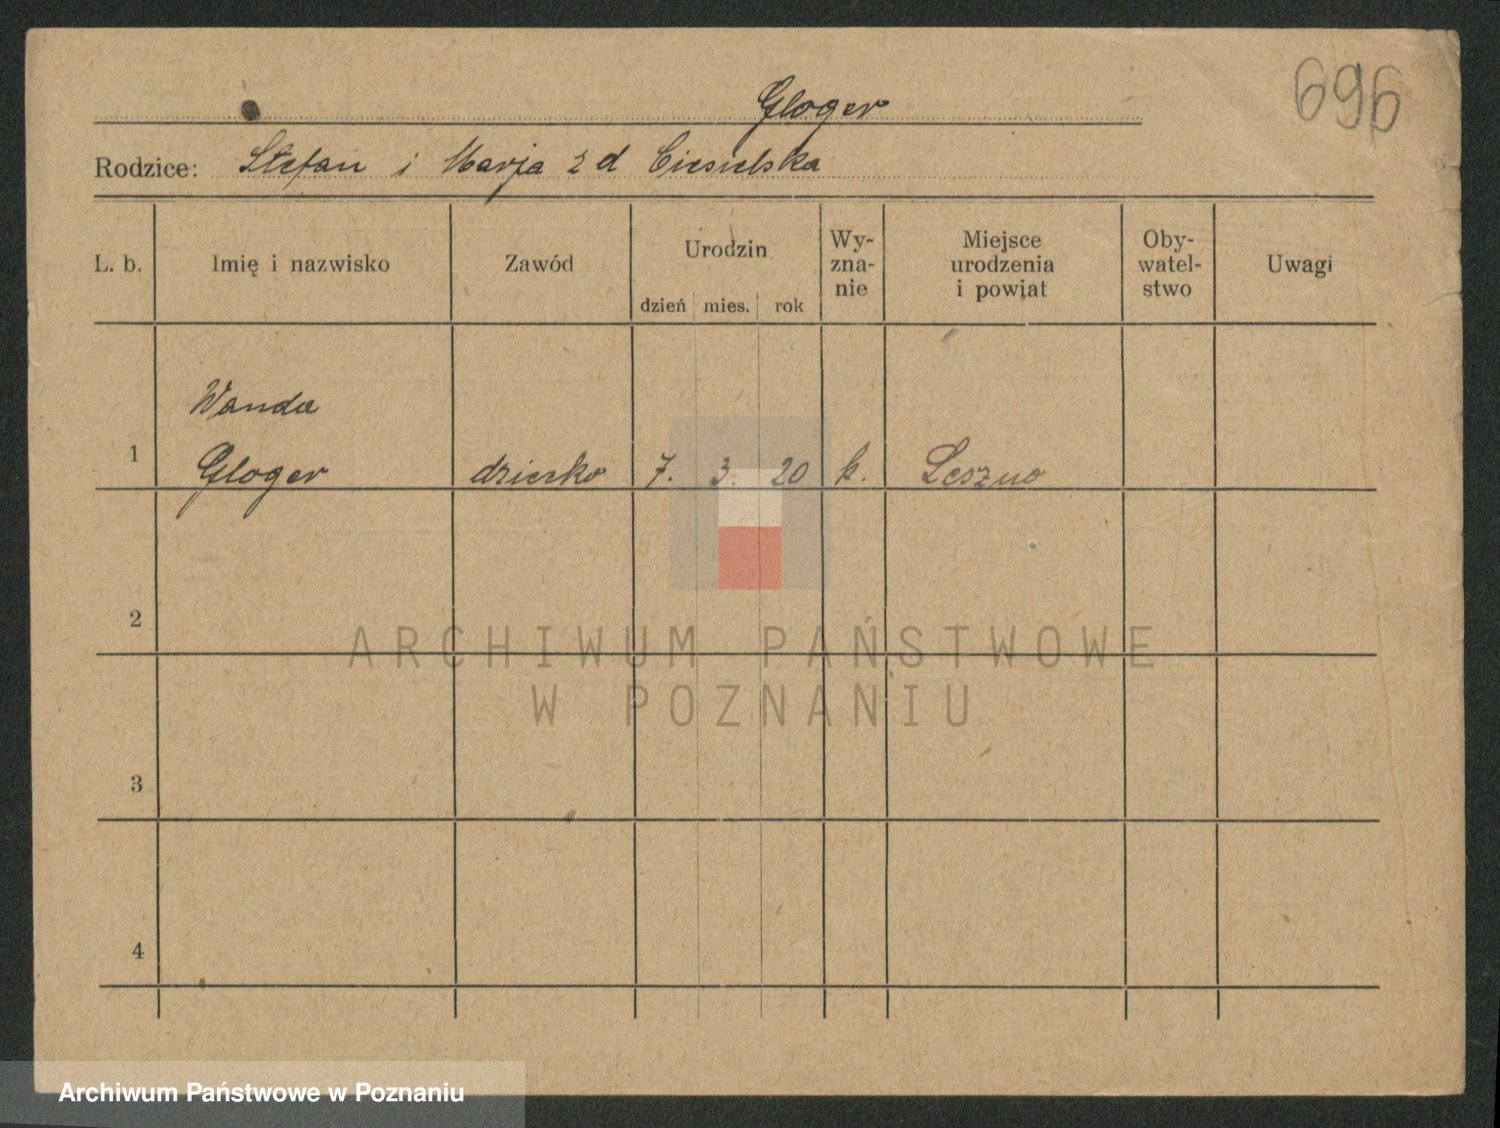 696
Gloger
Rodzice: Stefan i Marja z d Ciesielska
L. b. Imię i nazwisko Zawód Urodzin dzień mies. rok Wy-zna-nie Miejsce urodzenia i powiat Oby-watel-stwo Uwagi
Wanda
1 Gloger dziecko 7. 3. 20 k. Leszno
2
ARCHIWUM PAŃSTWOWE
W POZNANIU
3
4
Archiwum Państwowe w Poznaniu